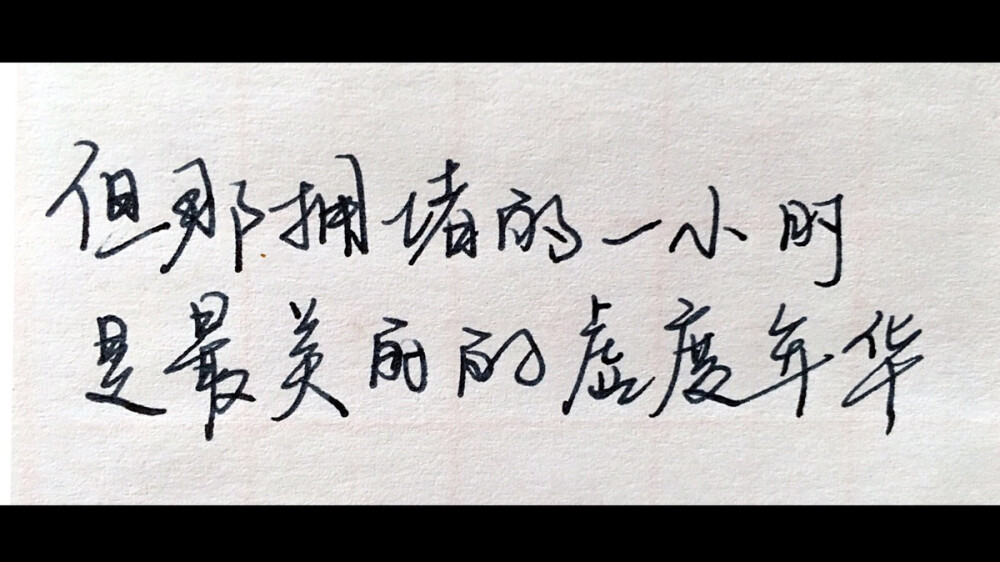 但那拥堵的一小时
是最美丽的虚度年华